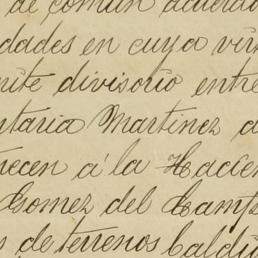 de común acuerdo
dades en cuya vir
ite divisorio entre
ntaria Martinez a
recen á la Hacien
Gomez del Camp
s de terrenos baldi